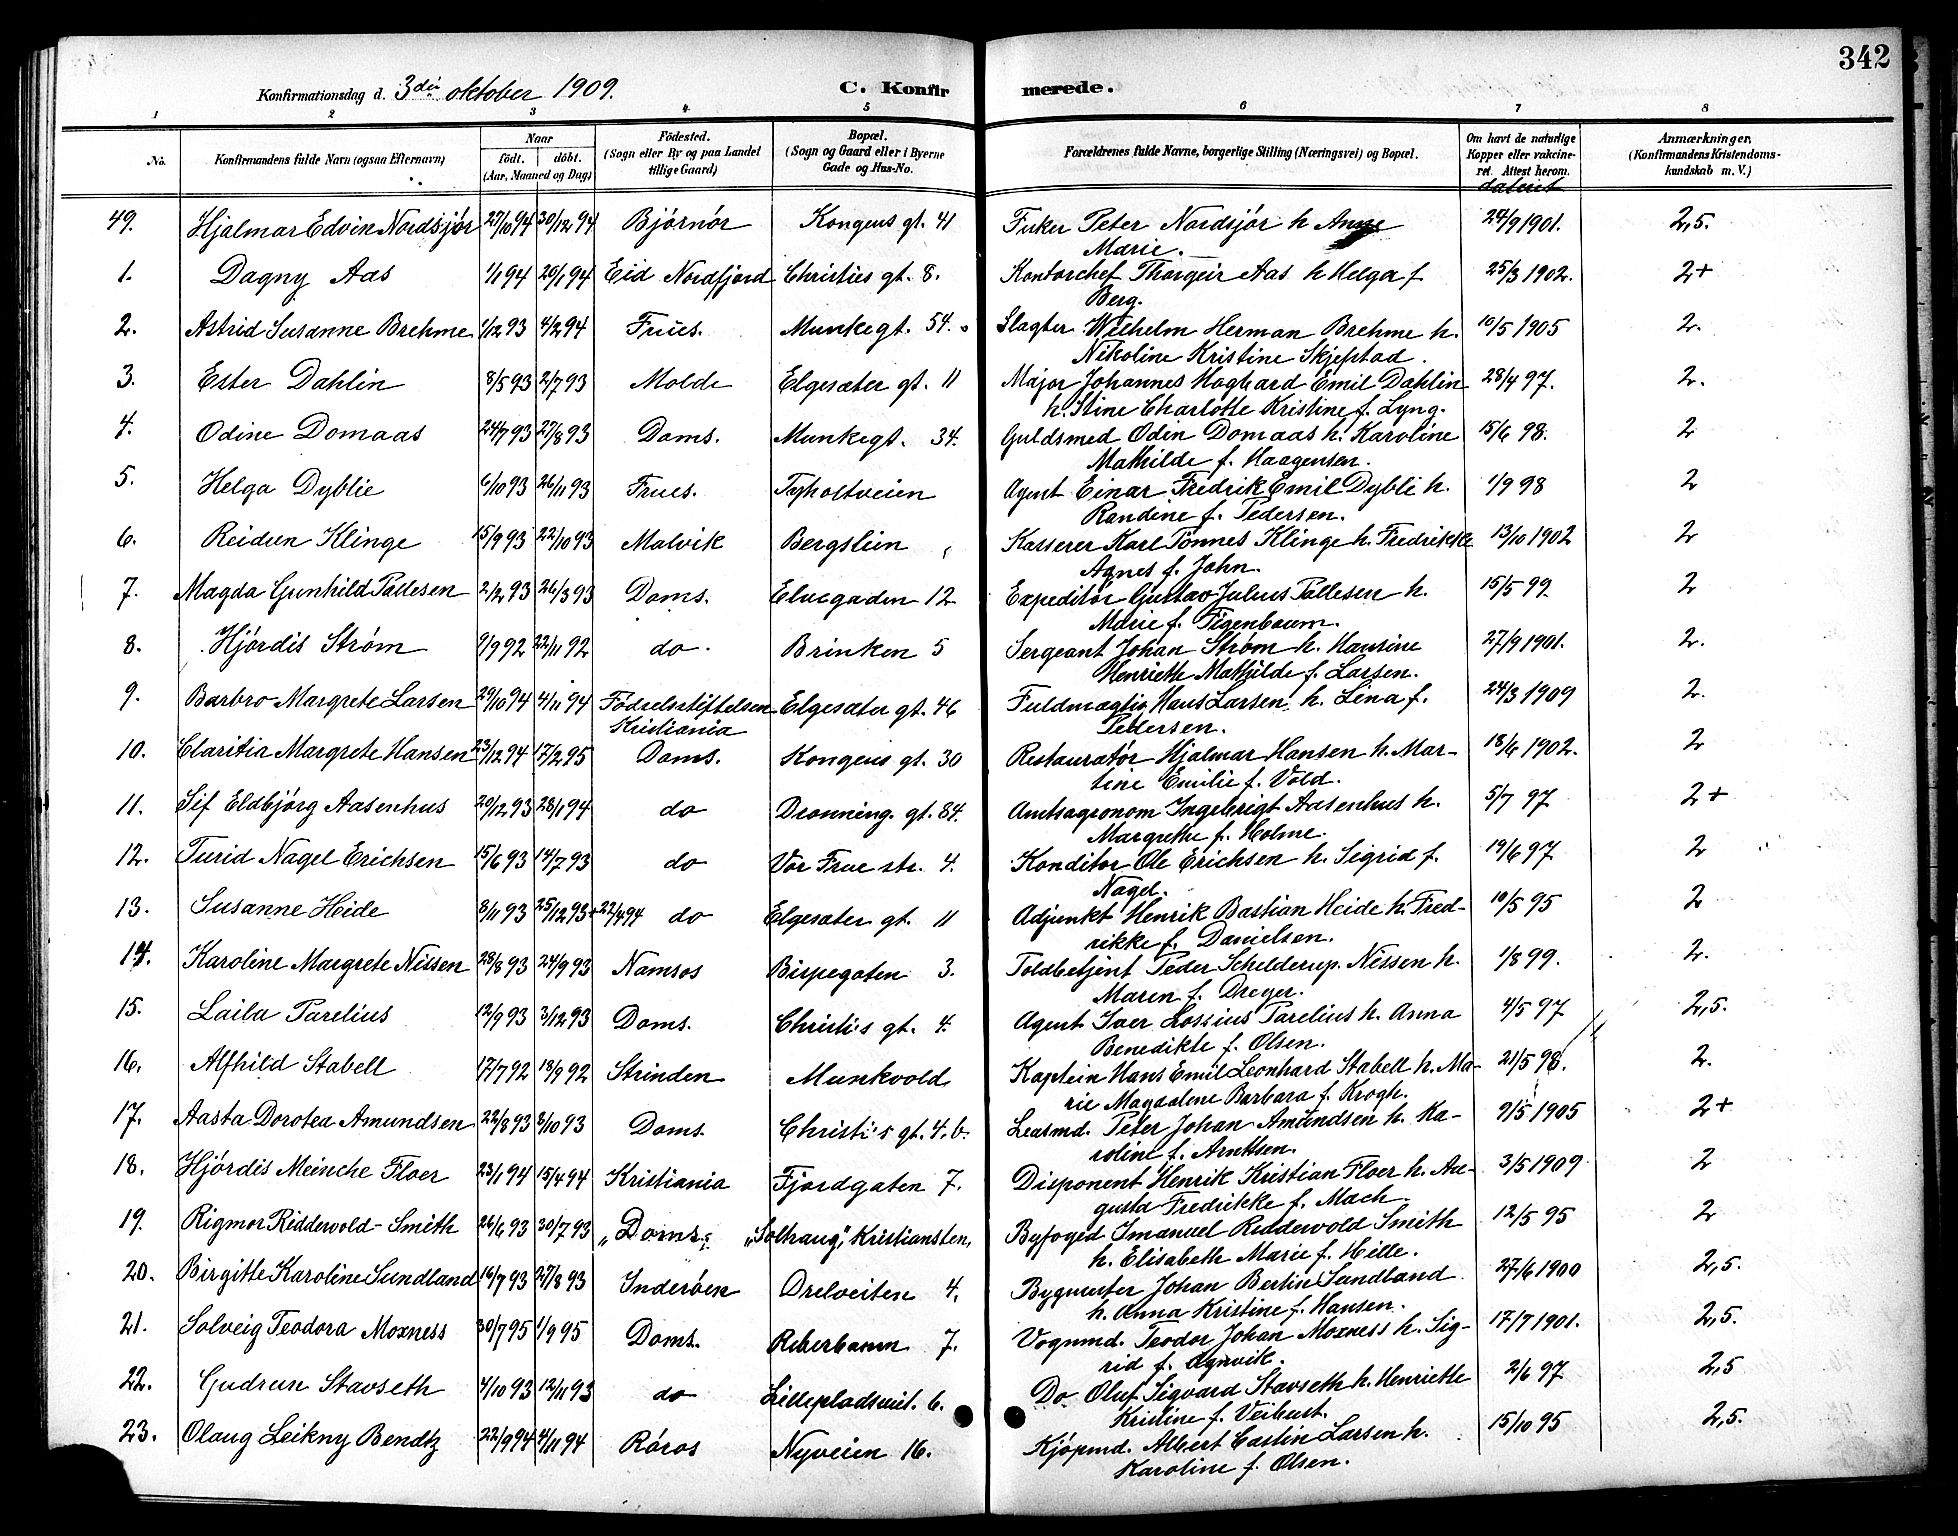 342
Konfirmationsdag d. 3die oktober 1909. C. Konfirmerede.
1 2 3 4 5 6 7 8
No. Konfirmandens fulde Navn (ogsaa Efternavn) Naar født. døbt. (Aar, Maaned og Dag) Fødested. (Sogn eller By og paa Landet tillige Gaard) Bopæl. (Sogn og Gaard eller i Byerne Gade og Hus-No. Forældrenes fulde Navne, borgerlige Stilling (Næringsvei) og Bopæl. Om havt de naturlige Kopper eller vakcineret. Attest herom. dateret Anmærkninger. (Konfirmandens Kristendomskundskab m. V.)
49. Hjalmar Edvin Nordsjør 27/10 94 30/12 94 Bjørnør Kongens gt. 41 Peter Nordsjør h. Anne 24/9 1901. 2,5.
Marie.
1. Dagny Aas 1/1 94 20/1 94 Eid Nordfjord Christies gt. 8. Kontorchef Thorgeir Aas h. Helga f. 25/3 1902. 2+
Berg.
2. Astrid Susanne Brehme 1/12 93 4/2 94 Frues. Munkegt. 54. Slagter Wilhelm Herman Brehme h. 10/5 1905 2.
Nikoline Kristine Skjefstad.
3. Ester Dahlin 8/5 93 2/7 93 Molde Elgesæter gt. 11 Major Johannes Hagbard Emil Dahlin 28/4 97. 2.
h. Stine Charlotte Kristine f. Lyng.
4. Odine Domaas 24/7 93 27/8 93 Doms. Munkegt. 34. Guldsmed Odin Domaas h. Karoline 15/6 98. 2
Mathilde f. Haagensen.
5. Helga Dyblie 6/10 93 26/11 93 Frues. Tyholtveien Agent Einar Fredrik Emil Dybli h. 1/9 98 2
Randine f. Pedersen.
6. Reidun Klinge 15/9 93 22/10 93 Malvik Bergslien Kasserer Karl Tønnes Klinge h. Fredrikke 13/10 1902 2
Agnes f. John.
7. Magda Gunhild Pallesen 2/2 93 26/3 93 Doms. Elvegaden 12 Expeditør Gustav Julius Pallesen h. 15/5 99 2
Marie f. Figenbaum.
8. Hjørdis Strøm 9/9 92 22/11 92 do. Brinken 5 Sergeant Johan Strøm h. Hansine 27/9 1901. 2.
Henriette Mathilde f. Larsen.
9. Barbro Margrete Larsen 29/10 94 4/11 94 Fødselsstiftelsen Elgesæter gt. 46 Fuldmægtig Hans Larsen h. Lina f. 24/3 1909 2.
Kristiania Pedersen.
10. Claritia Margrete Hansen 23/12 94 17/2 95 Doms. Kongens gt. 30 Restauratør Hjalmar Hansen h. Mar- 18/6 1902. 2
tine Emilie f. Vold.
11. Sif Eldbjørg Aasenhus 20/12 93 28/1 94 do Dronning. gt. 84. Amtsagronom Ingebrigt Aasenhus h. 5/7 97 2+
Margrethe f. Holme.
12. Turid Nagel Erichsen 15/6 93 14/7 93 do Vor Frue str. 4. Konditor Ole Erichsen h. Sigrid f. 19/6 97. 2
Nagel.
13. Susanne Heide 8/11 93 25/12 93 + 22/4 94 do Elgesæter gt. 11 Adjunkt Henrik Bastian Heide h. Fred- 10/5 95 2
rikke f. Danielsen.
14. Karoline Margrete Nissen 28/8 93 24/9 93 Namsos Bispegaten 3. Toldbetjent Peder Schelderup. Nissen h. 1/8 99. 2.
Maren f. Dreyer.
15. Laila Parelius 12/9 93 3/12 93 Doms. Christi's gt. 4. Agent Iver Lossius Parelius h. Anna 4/5 97 2,5.
Benedikte f. Olsen.
16. Alfhild Stabell 17/7 92 18/9 92 Strinden Munkvold Kaptein Hans Emil Leonhard Stabell h. Ma- 21/5 98. 2.
rie Magdalene Barbara f. Krogh.
17. Aasta Dorotea Amundsen 22/8 93 8/10 93 Doms. Christi's gt. 4. b. Læsmd. Peter Johan Amundsen h. Ka- 9/5 1905 2+
roline f. Arntsen.
18. Hjørdis Meinche Floer 23/1 94 15/4 94 Kristiania Fjordgaten 7. Disponent Henrik Kristian Floer h. Au- 3/5 1909 2
gusta Fredrikke f. Mach.
19. Rigmor Ridderwold-Smith 26/6 93 30/7 93 „Doms." „Solhaug", Kristiansten. Byfoged Imanuel Ridderwold Smith 12/5 95 2
h. Elisabeth Marie f. Hille.
20. Birgitte Karoline Sundland 16/7 93 27/8 93 Inderøen Ørelveiten 4. Bygmester Johan Bertin Sundland 27/6 1900 2,5.
h. Anna Kristine f. Hansen.
21. Solveig Teodora Moxness 30/7 95 1/9 95 Doms. Reberbanen 7. Vognmd. Teodor Johan Moxness h. Sig- 17/7 1901. 2,5.
rid f. Agnvik.
22. Gudrun Stavseth 4/10 93 12/11 93 do Lillepladsveit. 6. Do Oluf Sigvard Stavseth h. Henriette 2/6 97 2,5
Kristine f. Veibust.
23. Olaug Leikny Bendtz 22/9 94 4/11 94 Røros Nyveien 16. Kjøpmd. Albert Castin Larsen h. 15/10 95 2,5.
Karoline f. Olsen.